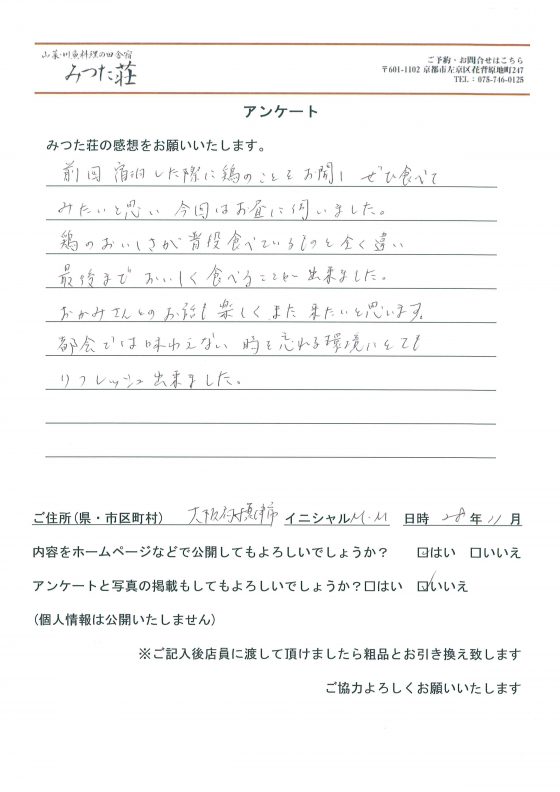 山菜・川魚料理の田舎宿
みつた荘
ご予約・お問合せはこちら
〒601-1102 京都市左京区花脊原地町247
TEL : 075-746-0125
アンケート
みつた荘の感想をお願いいたします。
前回 宿泊した際に鶏のことをお聞し ぜひ食べて
みたいと思い 今回はお昼に伺いました。
鶏のおいしさが普段食べているものと全く違い
最後まで おいしく 食べることが 出来ました。
おかみさんとのお話も 楽しく また 来たいと思います。
都会では味わえない 時を忘れる環境にとても
リフレッシュ出来ました。
ご住所(県・市区町村) 大阪府摂津市 イニシャル M.M 日時 28 年 11 月
内容をホームページなどで公開してもよろしいでしょうか? ☑はい □いいえ
アンケートと写真の掲載もしてもよろしいでしょうか?□はい ☑いいえ
(個人情報は公開いたしません)
※ご記入後店員に渡して頂けましたら粗品とお引き換え致します
ご協力よろしくお願いいたします